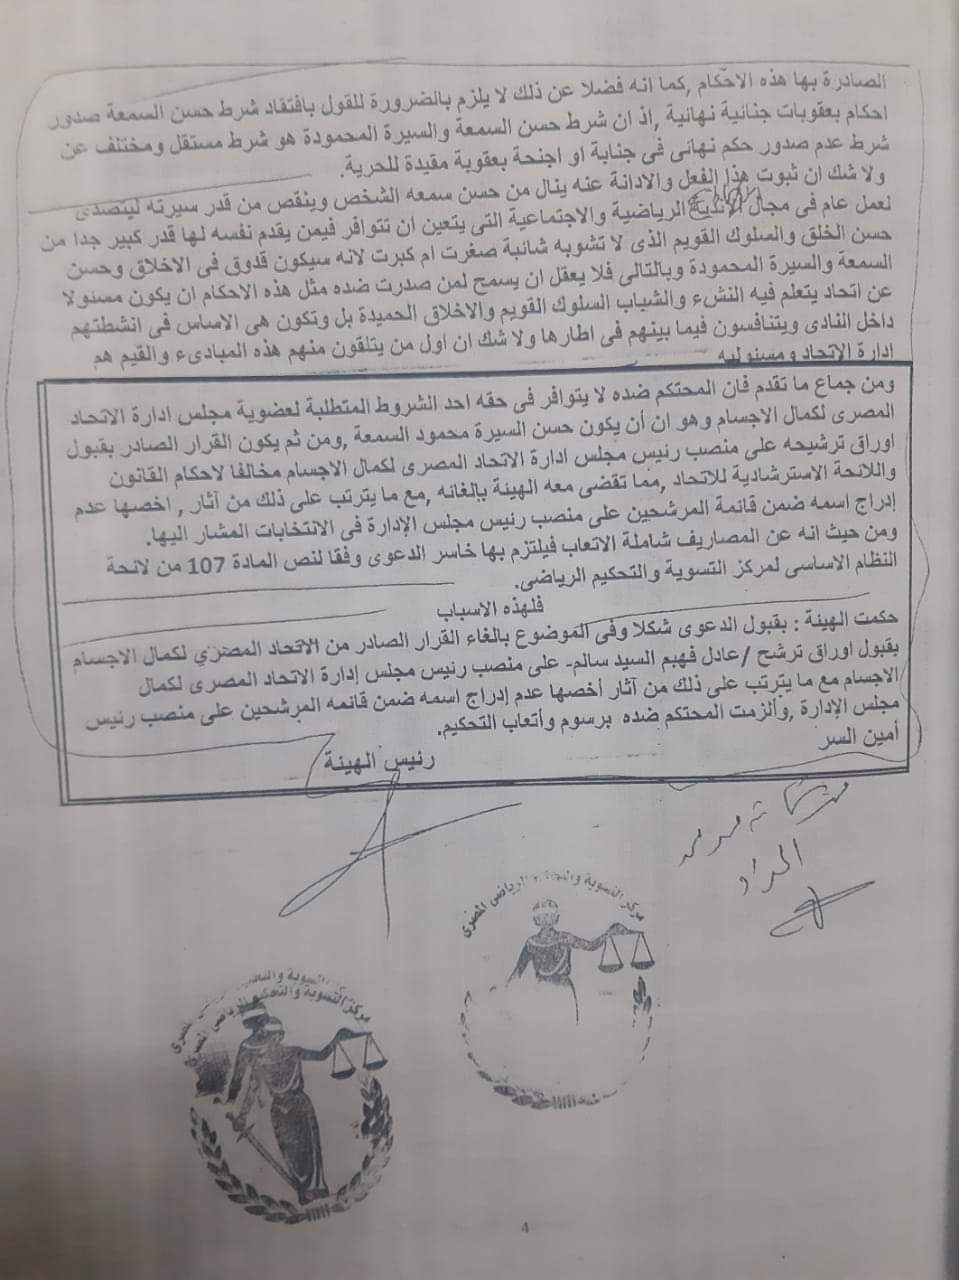 الصادرة بها هذه الاحكام ,كما انه فضلا عن ذلك لا يلزم بالضرورة للقول بافتقاد شرط حسن السمعة صدور
احكام بعقوبات جنائية نهائية ,اذ ان شرط حسن السمعة والسيرة المحمودة هو شرط مستقل ومختلف عن
شرط عدم صدور حكم نهائى فى جناية او اجنحة بعقوبة مقيدة للحرية.
ولا شك ان ثبوت هذا الفعل والادانة عنه ينال من حسن سمعه الشخص وينقص من قدر سيرته ليتصدى
لعمل عام فى مجال الاندية الرياضية والاجتماعية التى يتعين ان تتوافر فيمن يقدم نفسه لها قدر كبير جدا من
حسن الخلق والسلوك القويم الذى لا تشوبه شائبة صغرت ام كبرت لانه سيكون قدوق فى الاخلاق وحسن
السمعة والسيرة المحمودة وبالتالى فلا يعقل ان يسمح لمن صدرت ضده مثل هذه الاحكام ان يكون مسئولا
عن اتحاد يتعلم فيه النشء والشباب السلوك القويم والاخلاق الحميدة بل وتكون هى الاساس فى انشطتهم
داخل النادى ويتنافسون فيما بينهم فى اطارها ولا شك ان اول من يتلقون منهم هذه المبادىء والقيم هم
إدارة الاتحاد ومسئوليه
ومن جماع ما تقدم فان المحتكم ضده لا يتوافر فى حقه احد الشروط المتطلبة لعضوية مجلس ادارة الاتحاد
المصرى لكمال الاجسام وهو ان أن يكون حسن السيرة محمود السمعة ,ومن ثم يكون القرار الصادر بقبول
اوراق ترشيحه على منصب رئيس مجلس ادارة الاتحاد المصرى لكمال الاجسام مخالفا لاحكام القانون
واللائحة الاسترشادية للاتحاد ,مما تقضى معه الهيئة بإلغائه ,مع ما يترتب على ذلك من آثار , اخصها عدم
إدراج اسمه ضمن قائمة المرشحين على منصب رئيس مجلس الإدارة فى الانتخابات المشار اليها.
ومن حيث انه عن المصاريف شاملة الاتعاب فيلتزم بها خاسر الدعوى وفقا لنص المادة 107 من لائحة
النظام الاساسى لمركز التسوية والتحكيم الرياضى.
فلهذه الاسباب
حكمت الهيئة : بقبول الدعوى شكلا وفى الموضوع بالغاء القرار الصادر من الاتحاد المصرى لكمال الاجسام
بقبول اوراق ترشح /عادل فهيم السيد سالم- على منصب رئيس مجلس إدارة الاتحاد المصرى لكمال
الاجسام مع ما يترتب على ذلك من آثار أخصها عدم إدراج اسمه ضمن قائمه المرشحين على منصب رئيس
مجلس الإدارة ,وألزمت المحتكم ضده برسوم وأتعاب التحكيم.
أمين السر
رئيس الهيئة
مركز التسوية والتحكيم الرياضى المصرى
مركز التسوية والتحكيم الرياضى المصرى
4